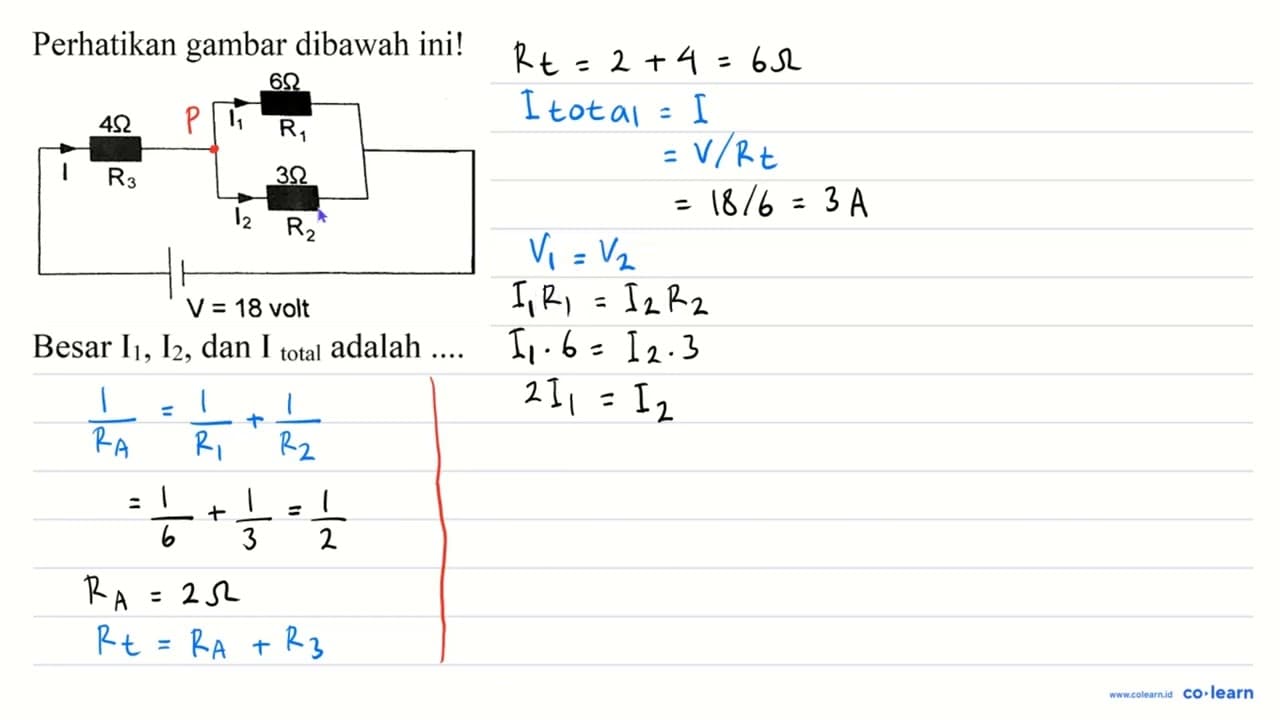 Perhatikan gambar dibawah ini!
6Ω
4Ω
P
I₁
R₁
I
R₃
3Ω
I₂
R₂
V = 18 volt
Besar I₁, I₂, dan I total adalah ....
1/R_A = 1/R₁ + 1/R₂
= 1/6 + 1/3 = 1/2
R_A = 2Ω
Rt = R_A + R₃
Rt = 2 + 4 = 6Ω
I total = I
= V/Rt
= 18/6 = 3 A
V₁ = V₂
I₁R₁ = I₂R₂
I₁ . 6 = I₂ . 3
2I₁ = I₂
www.colearn.id co·learn